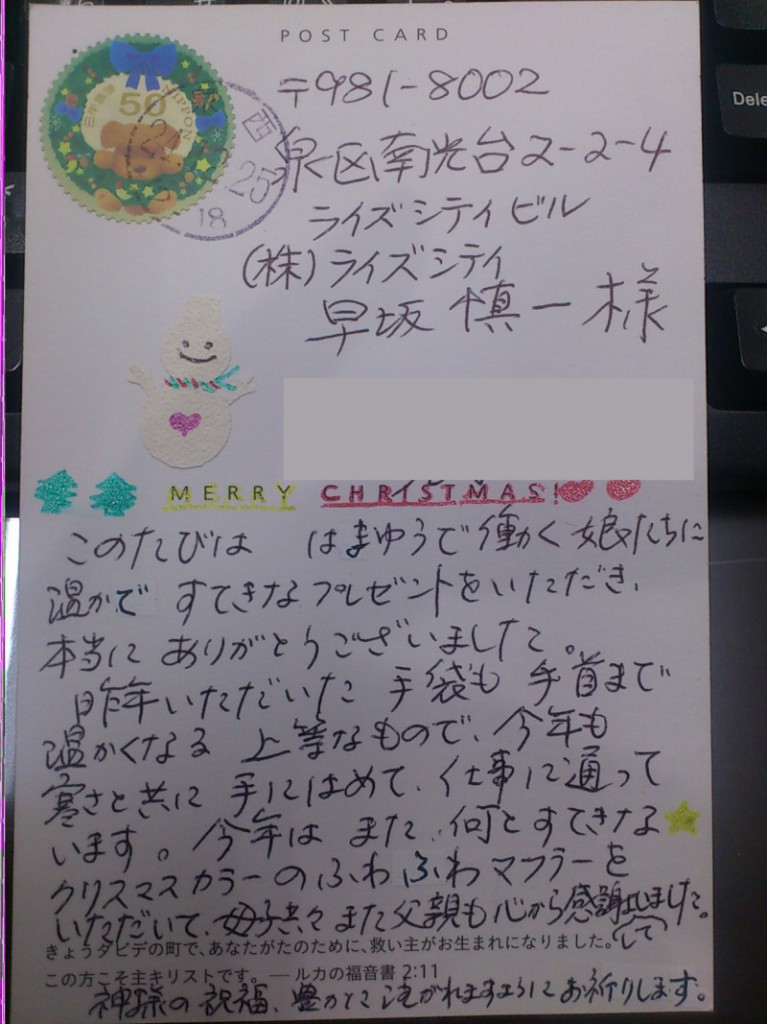 POST CARD
日本郵便 50 NIPPON
西
24
25
18
〒981-8002
泉区南光台2-2-4
ライズシティビル
(株)ライズシティ
早坂 慎一 様
MERRY CHRISTMAS!
このたびは はまゆうで働く娘たちに
温かで すてきなプレゼントをいただき、
本当に ありがとうございました。
昨年いただいた 手袋も 手首まで
温かくなる 上等なもので、今年も
寒さと共に 手にはめて、仕事に通って
います。今年は また、何とすてきな
クリスマスカラーの ふわふわマフラーを
いただいて、母子共々 また父親も 心から感謝しました。
きょうダビデの町で、あなたがたのために、救い主がお生まれになりました。
この方こそ主キリストです。 — ルカの福音書 2:11
神様の祝福、豊かに注がれますようにお祈りします。
Dele